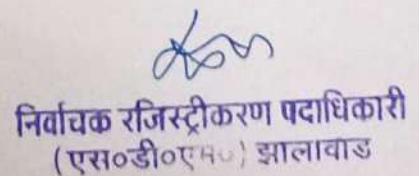 निर्वाचक रजिस्ट्रीकरण पदाधिकारी
(एस०डी०एम०) झालावाड